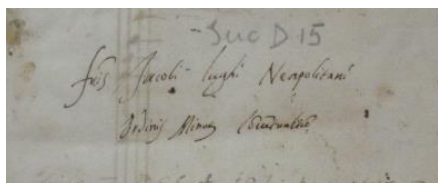 - Suc D 15
fris Jacobi lughi Neapolitani
Ordinis Minor Conventualiu